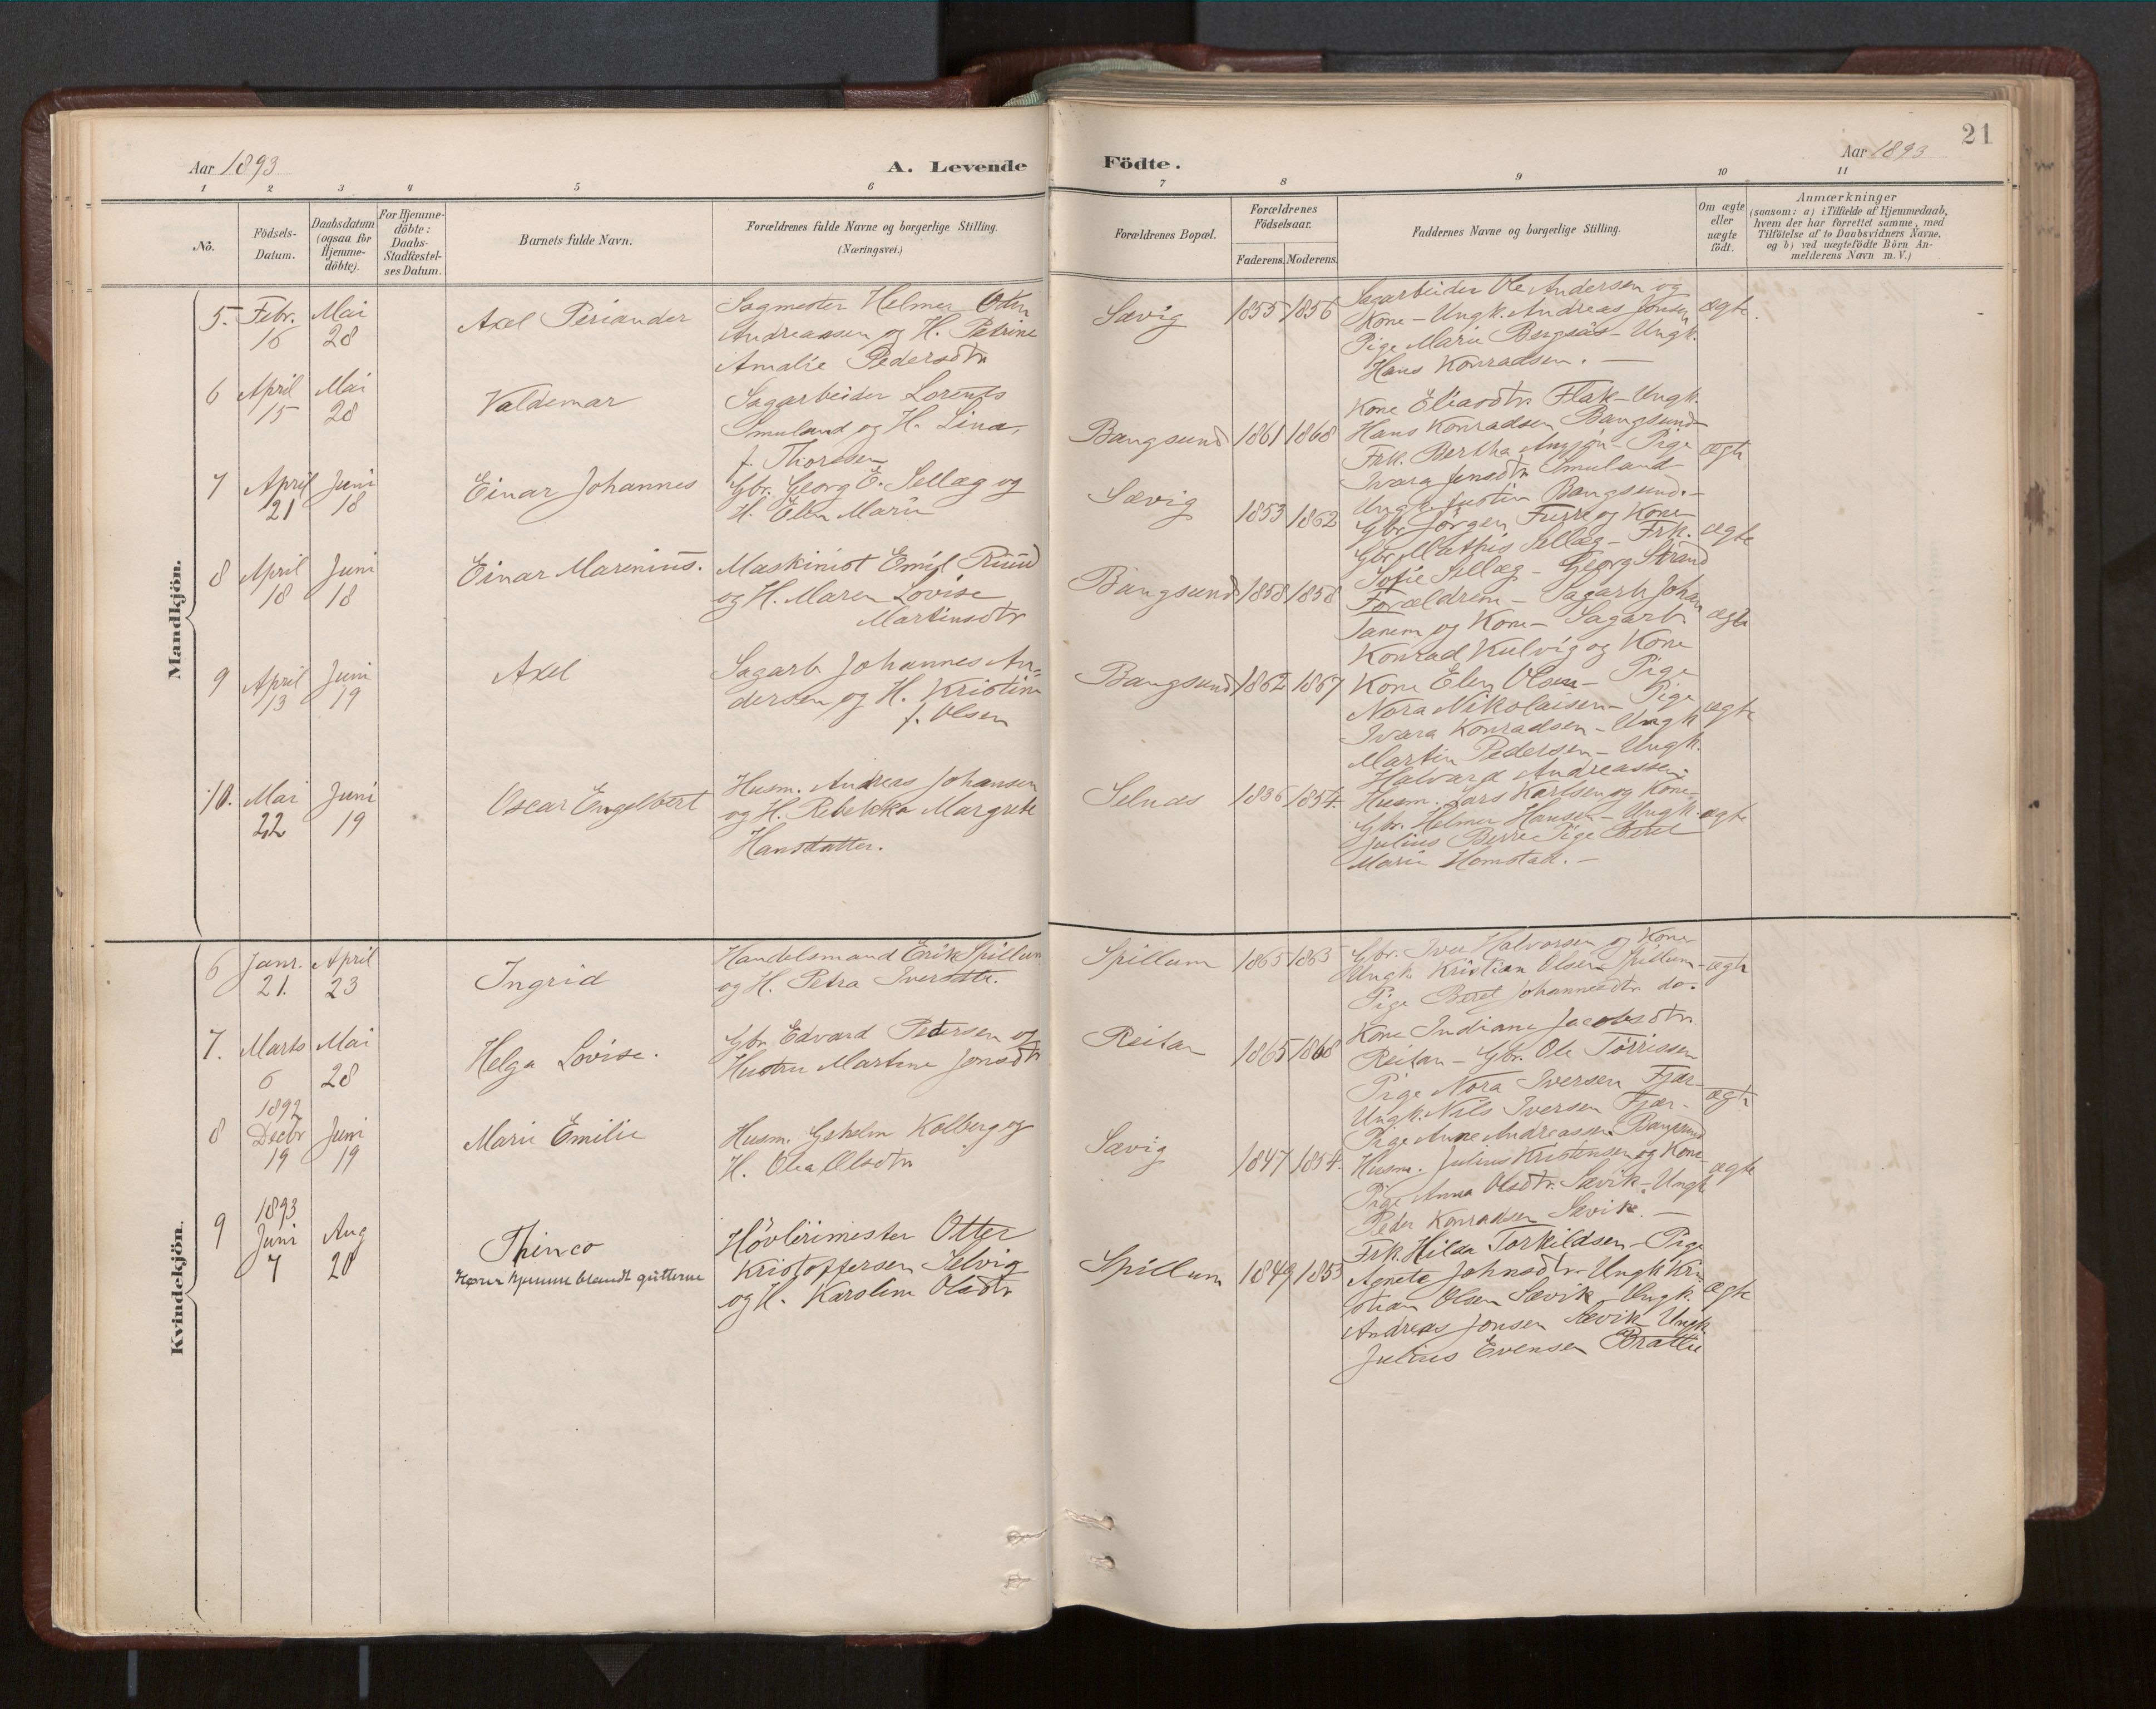 21
Aar 1893
A. Levende
Födte.
Aar 1893
1 2 3 4 5 6 7 8 9 10 11
No.
Födsels-
Datum.
Daabsdatum
(ogsaa for
Hjemme-
döbte).
For Hjemme-
döbte:
Daabs-
Stadfæstel-
ses Datum.
Barnets fulde Navn.
Forældrenes fulde Navne og borgerlige Stilling.
(Næringsvei.)
Forældrenes Bopæl.
Forældrenes
Födselsaar.
Faderens. Moderens.
Faddernes Navne og borgerlige Stilling.
Om ægte
eller
uægte
födt.
Anmærkninger
(saasom: a) i Tilfælde af Hjemmedaab,
hvem der har forrettet samme, med
Tilföielse af to Daabsvidners Navne,
og b) ved uægtefödte Börn An-
melderens Navn m. V.)
Mandkjön.
5. Febr. 16
Mai 28
Axel Periander
Sagmester Helmer Odin
Andreassen og H. Petrine
Amalie Pedersdtr
Sævig
1855 1856
Sagarbeider Ole Andersen og
Kone - Ungk. Andreas Jonsen
Pige Marie Bergsås - Ungk.
Hans Konradsen. -
ægte.
6 April 15
Mai 28
Valdemar
Sagarbeider Lorents
Smuland og H. Lina,
f. Thoresen
Bangsund
1861 1868
Kone Eliasdtr. Flak - Ungk.
Hans Konradsen Bangsund
Frk. Bertha - Pige
Ivara Jensdtr Smuland
Ungk. Justin Bangsund. -
ægte
7 April 21
Juni 18
Einar Johannes
Gbr. Georg E. Sellæg og
H. Elen Marie
Sævig
1853 1862
Gbr. Jörgen og Kone
Gbr. Mathis Sellæg - Frk.
Sofie Sellæg - Georg Strand
ægte
8 April 18
Juni 18
Einar Marenius.
Maskinist Emil Ruud
og H. Maren Lovise
Martinsdtr
Bangsund
1858 1858
Forældrene - Sagarb. Johan
Tanem og Kone - Sagarb.
Konrad Kulvig og Kone
ægte
9 April 13
Juni 19
Axel
Sagarb Johannes An-
dersen og H. Kristine
f. Olsen
Bangsund
1862 1867
Kone Elen Olsen - Pige
Nora Nikolaisen - Pige
Ivara Konradsen - Ungk
Martin Pedersen - Ungk.
Halvard Andreassen
ægte
10. Mai 22
Juni 19
Oscar Engelbert
Husm. Andreas Johansen
og H. Rebekka Margrete
Hansdatter.
Selnæs
1836 1854.
Husm. Lars Karlsen og Kone -
Gbr. Helmer Hansen - Ungk.
Julius Berre Pige Beret
Marie Homstad. -
ægte
Kvindekjön.
6 Janr. 21.
April 23
Ingrid
Handelsmand Erik Spillum
og H. Petra Iversdtr.
Spillum
1865 1863
Gbr. Iver Halvorsen og Kone
Ungk. Kristian Olsen Spillum -
Pige Beret Johannesdtr do.
ægte
7. Marts 6
Mai 28
Helga Lovise.
Gbr. Edvard Petersen og
Hustru Martine Jonsdtr
Reitan
1865 1868
Kone Indiane Jacobsdtr.
Reitan - Gbr. Ole Törrissen
Pige Nora Iversen Fjær -
Ungk. Nils Iversen Fjær -
Pige Anne Andreassen Bangsund
ægte
8 1892 Decbr 19
Juni 19
Marie Emilie
Husm. Kolberg og
H. Olea Olsdtr
Sævig
1847 1854.
Husm. Julius Kristensen og Kone
Pige Anna Olsdtr. Sævik - Ungk
Peder Konradsen Sævik. -
ægte
9 1893 Juni 7
Aug 20
Thinco
Hører hjemme blandt gutterne
Hövlerimester Otter
Kristoffersen Selvig
og H. Karoline Olsdtr
Spillum
1849 1853
Frk. Hilda Torkildsen - Pige
Agnete Johnsdtr - Ungk Kri-
stian Olsen Sævik - Ungk.
Andreas Jonsen Sævik Ungk
Julius Evensen Brattli
ægte